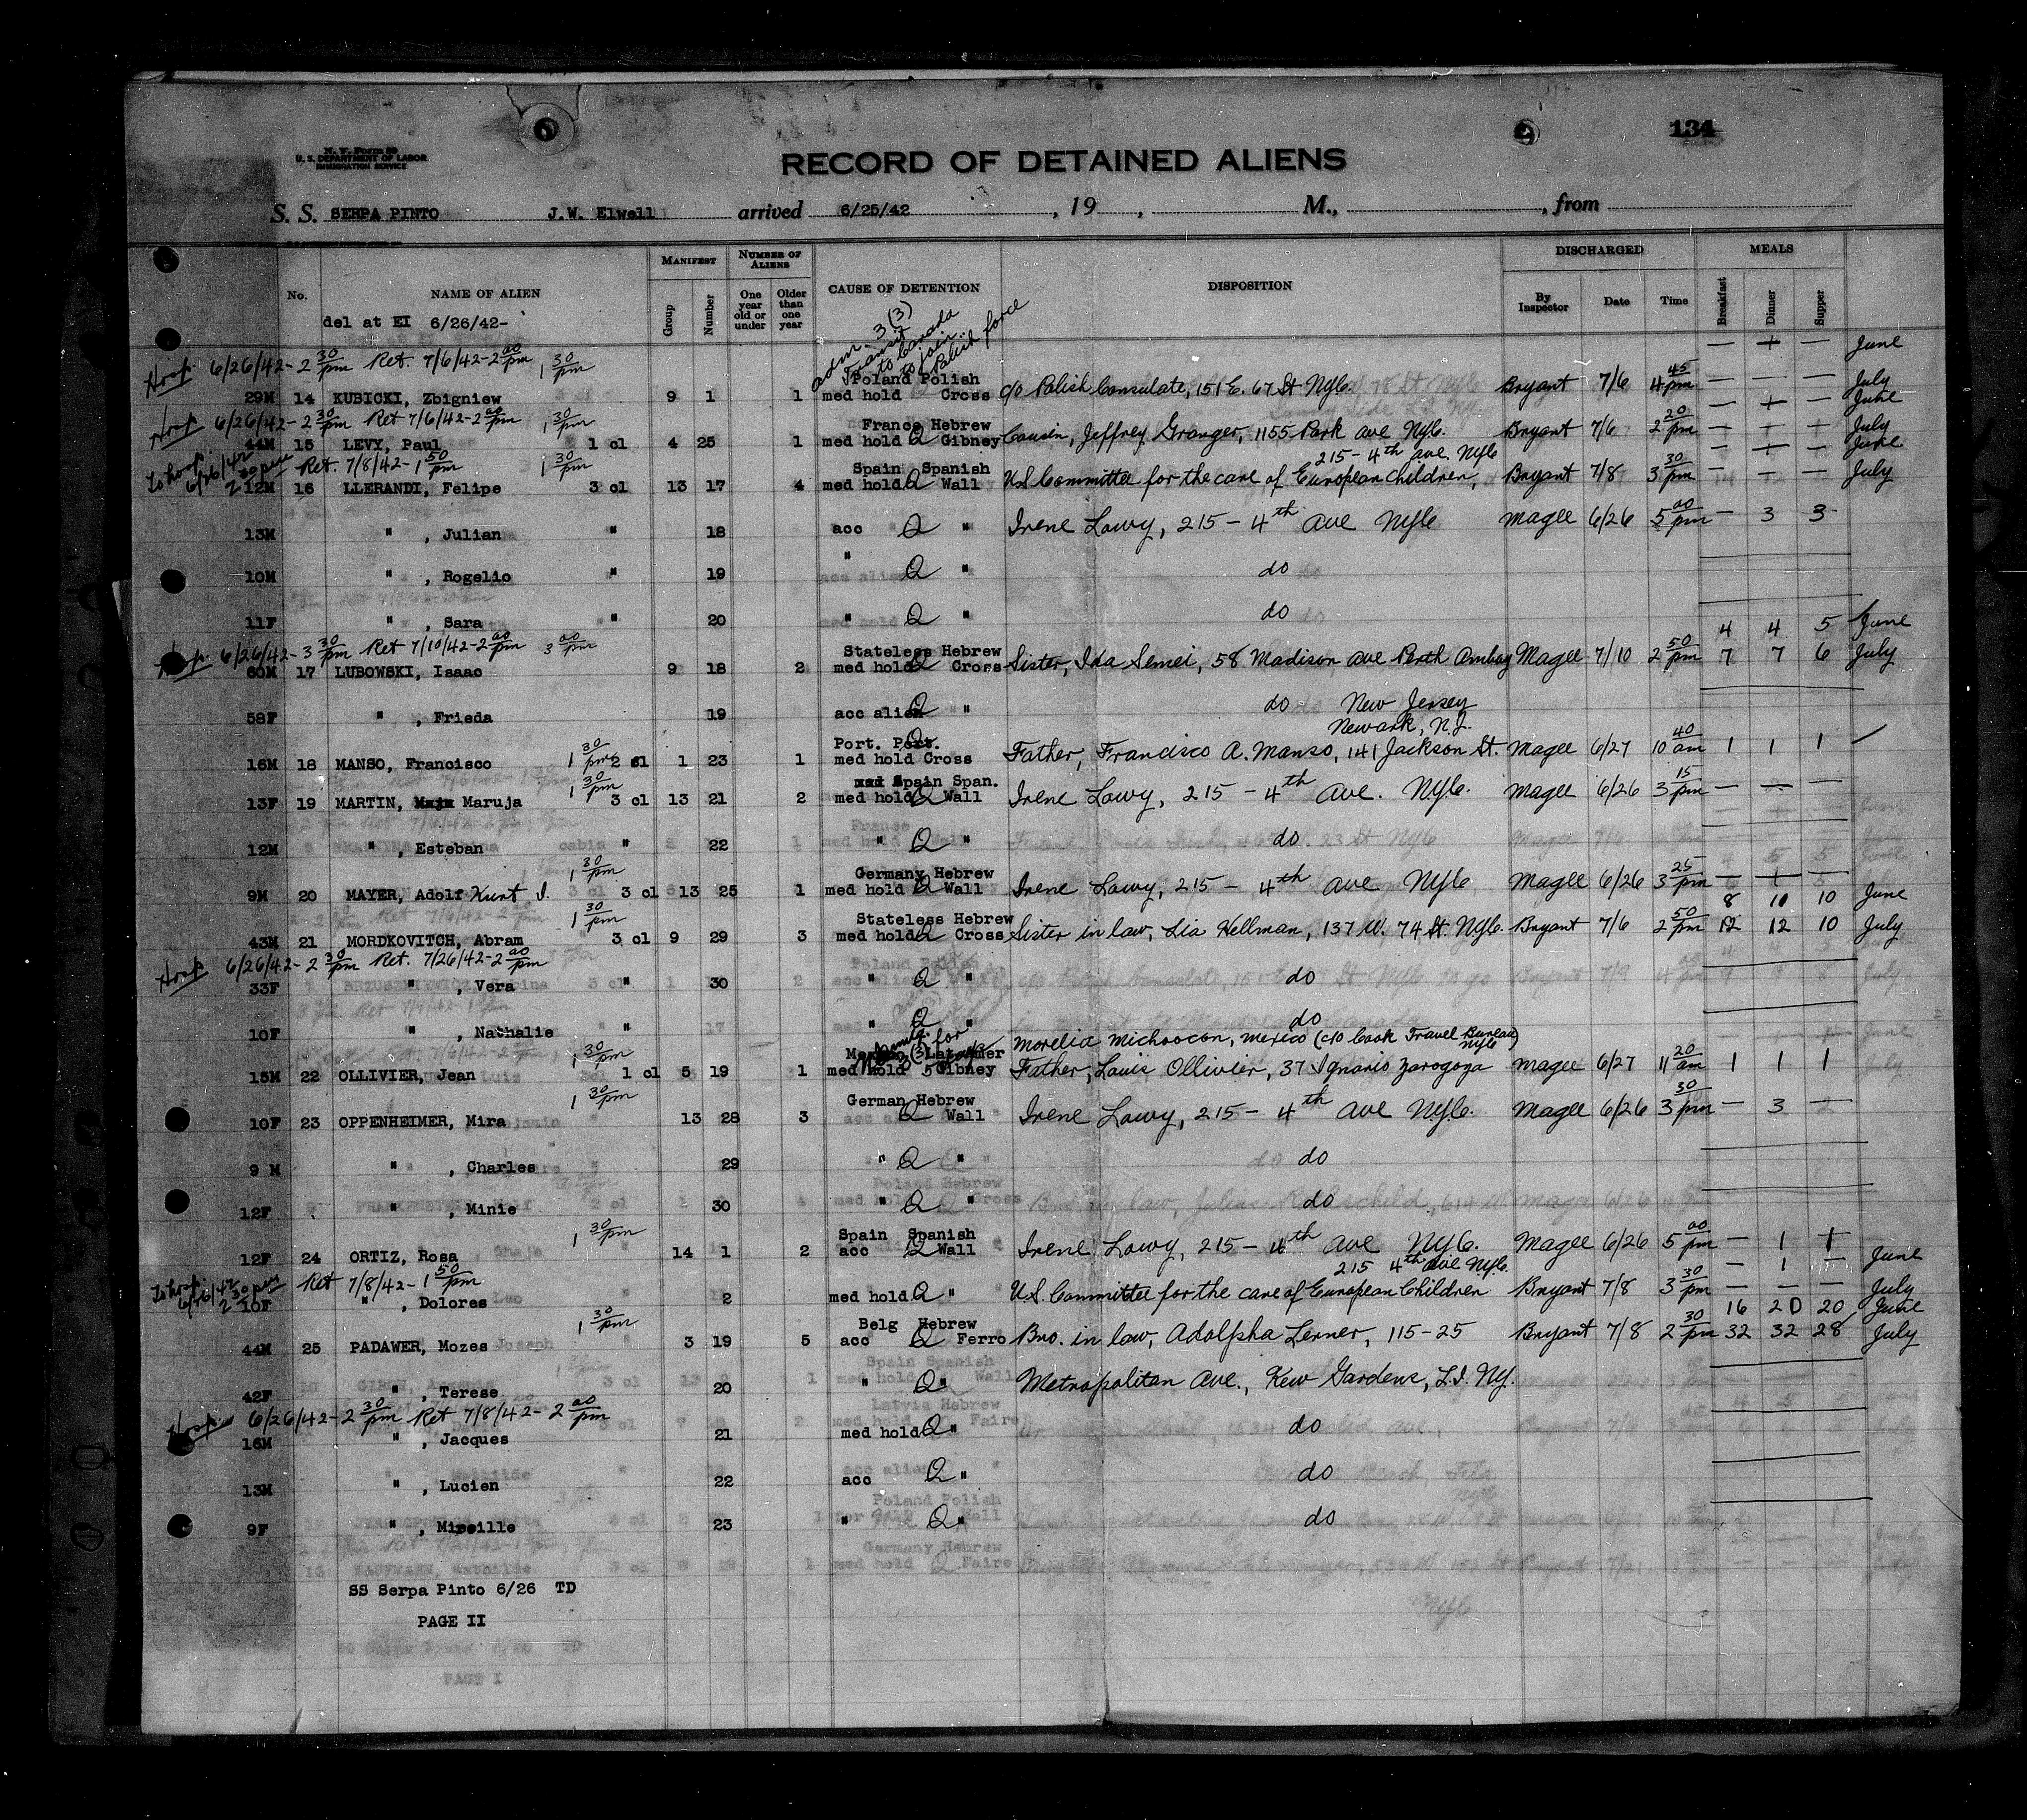 134
N. Y. Form 89
U. S. DEPARTMENT OF LABOR
IMMIGRATION SERVICE
RECORD OF DETAINED ALIENS
S. S. SERPA PINTO J.W. Elwell arrived 6/25/42 , 19 , M., , from
No. NAME OF ALIEN MANIFEST Group Number NUMBER OF ALIENS One year old or under Older than one year CAUSE OF DETENTION DISPOSITION DISCHARGED By Inspector Date Time MEALS Breakfast Dinner Supper
del at EI 6/26/42-
adm. 3 (3) Transit to Canada to join Polish force
Hosp. 6/26/42-2 30/pm Ret. 7/6/42-2 00/pm 1 30/pm — + — June
Poland Polish
29M 14 KUBICKI, Zbigniew 9 1 1 med hold Cross c/o Polish Consulate, 151 E. 67 St NYC. Bryant 7/6 4 45/pm — — — July
Hosp 6/26/42-2 30/pm Ret 7/6/42-2 00/pm 1 30/pm — + — June
France Hebrew
44M 15 LEVY, Paul 1 cl 4 25 1 med hold Q Gibney Cousin, Jeffrey Granger, 1155 Park ave NYC. Bryant 7/6 2 20/pm — — — July
To hosp. 6/26/42 2 30 pm Ret. 7/8/42-1 50/pm 1 30/pm 215-4th ave. NYC — + — June
Spain Spanish
12M 16 LLERANDI, Felipe 3 cl 13 17 4 med hold Q Wall US Committee for the care of European Children, Bryant 7/8 3 30/pm — — — July
13M " , Julian " 18 acc Q " Irene Lowy, 215-4th Ave NYC Magee 6/26 5 00/pm — 3 3
10M " , Rogelio " 19 " Q " do
11F " , Sara " 20 " Q " do
Hosp. 6/26/42-3 30/pm Ret 7/10/42-2 00/pm 3 00/pm 4 4 5 June
Stateless Hebrew
60M 17 LUBOWSKI, Isaac 9 18 2 med hold Q Cross Sister, Ida Semei, 58 Madison ave Perth Amboy Magee 7/10 2 50/pm 7 7 6 July
58F " , Frieda 19 acc alien Q " do New Jersey
Newark, N.J.
Port. Port. Q
16M 18 MANSO, Francisco 1 30/pm 2 cl 1 23 1 med hold Cross Father, Francisco A. Manso, 141 Jackson St. Magee 6/27 10 40/am 1 1 1
Spain Span.
13F 19 MARTIN, Maruja 1 30/pm 3 cl 13 21 2 med hold Q Wall Irene Lowy, 215-4th Ave. NYC. Magee 6/26 3 15/pm — — —
12M " , Esteban " 22 " Q " do
Germany Hebrew
9M 20 MAYER, Adolf Kurt J. 1 30/pm 3 cl 13 25 1 med hold Q Wall Irene Lowy, 215-4th ave NYC Magee 6/26 3 25/pm — 1 —
1 30/pm 8 10 10 June
Stateless Hebrew
43M 21 MORDKOVITCH, Abram 3 cl 9 29 3 med hold Q Cross Sister in law, Lia Hellman, 137 W. 74 St. NYC. Bryant 7/6 2 50/pm 12 12 10 July
Hosp 6/26/42-2 30/pm Ret. 7/26/42-2 00/pm
33F " , Vera " 30 " Q " do
10F " , Nathalie " " Q " do
Morelia Michoocan, Mexico (c/o Cook Travel Bureau NYC)
15M 22 OLLIVIER, Jean 1 30/pm 1 cl 5 19 1 med hold Gibney Father, Louis Ollivier, 37 Ignario Zarogoza Magee 6/27 11 20/am 1 1 1
German Hebrew
10F 23 OPPENHEIMER, Mira 1 30/pm 13 28 3 Q Wall Irene Lowy, 215-4th ave NYC. Magee 6/26 3 30/pm — 3 —
9 M " , Charles 29 " Q " do
12F " , Minie 30 " Q " do
Spain Spanish
12F 24 ORTIZ, Rosa 1 30/pm 14 1 2 acc Q Wall Irene Lowy, 215-4th ave NYC. Magee 6/26 5 00/pm — 1 1
To hosp. 6/26/42 2 30 pm Ret 7/8/42-1 50/pm 215 4th ave NYC. — 1 — June
10F " , Dolores 2 med hold Q " U.S. Committee for the care of European Children Bryant 7/8 3 30/pm — — — July
1 30/pm 16 20 20 June
Belg Hebrew
44M 25 PADAWER, Mozes 3 19 5 acc Q Ferro Bro. in law, Adolpsha Lerner, 115-25 Bryant 7/8 2 30/pm 32 32 28 July
42F " , Terese 20 " Q " Metropolitan Ave., Kew Gardens, L.I. NY.
Hosp 6/26/42-2 30/pm Ret 7/8/42-2 00/pm
16M " , Jacques 21 med hold Q " do
13M " , Lucien 22 acc Q " do
9F " , Mireille 23 " Q " do
SS Serpa Pinto 6/26 TD
PAGE II